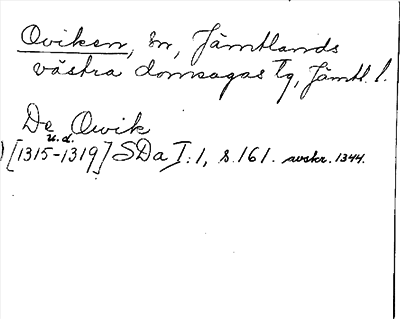 Oviken, sn, Jämtlands
västra domsagas tg, Jämtl. l.
De Owik
u.d.
) [1315-1319] SDa I:1, s.161. avskr. 1344.